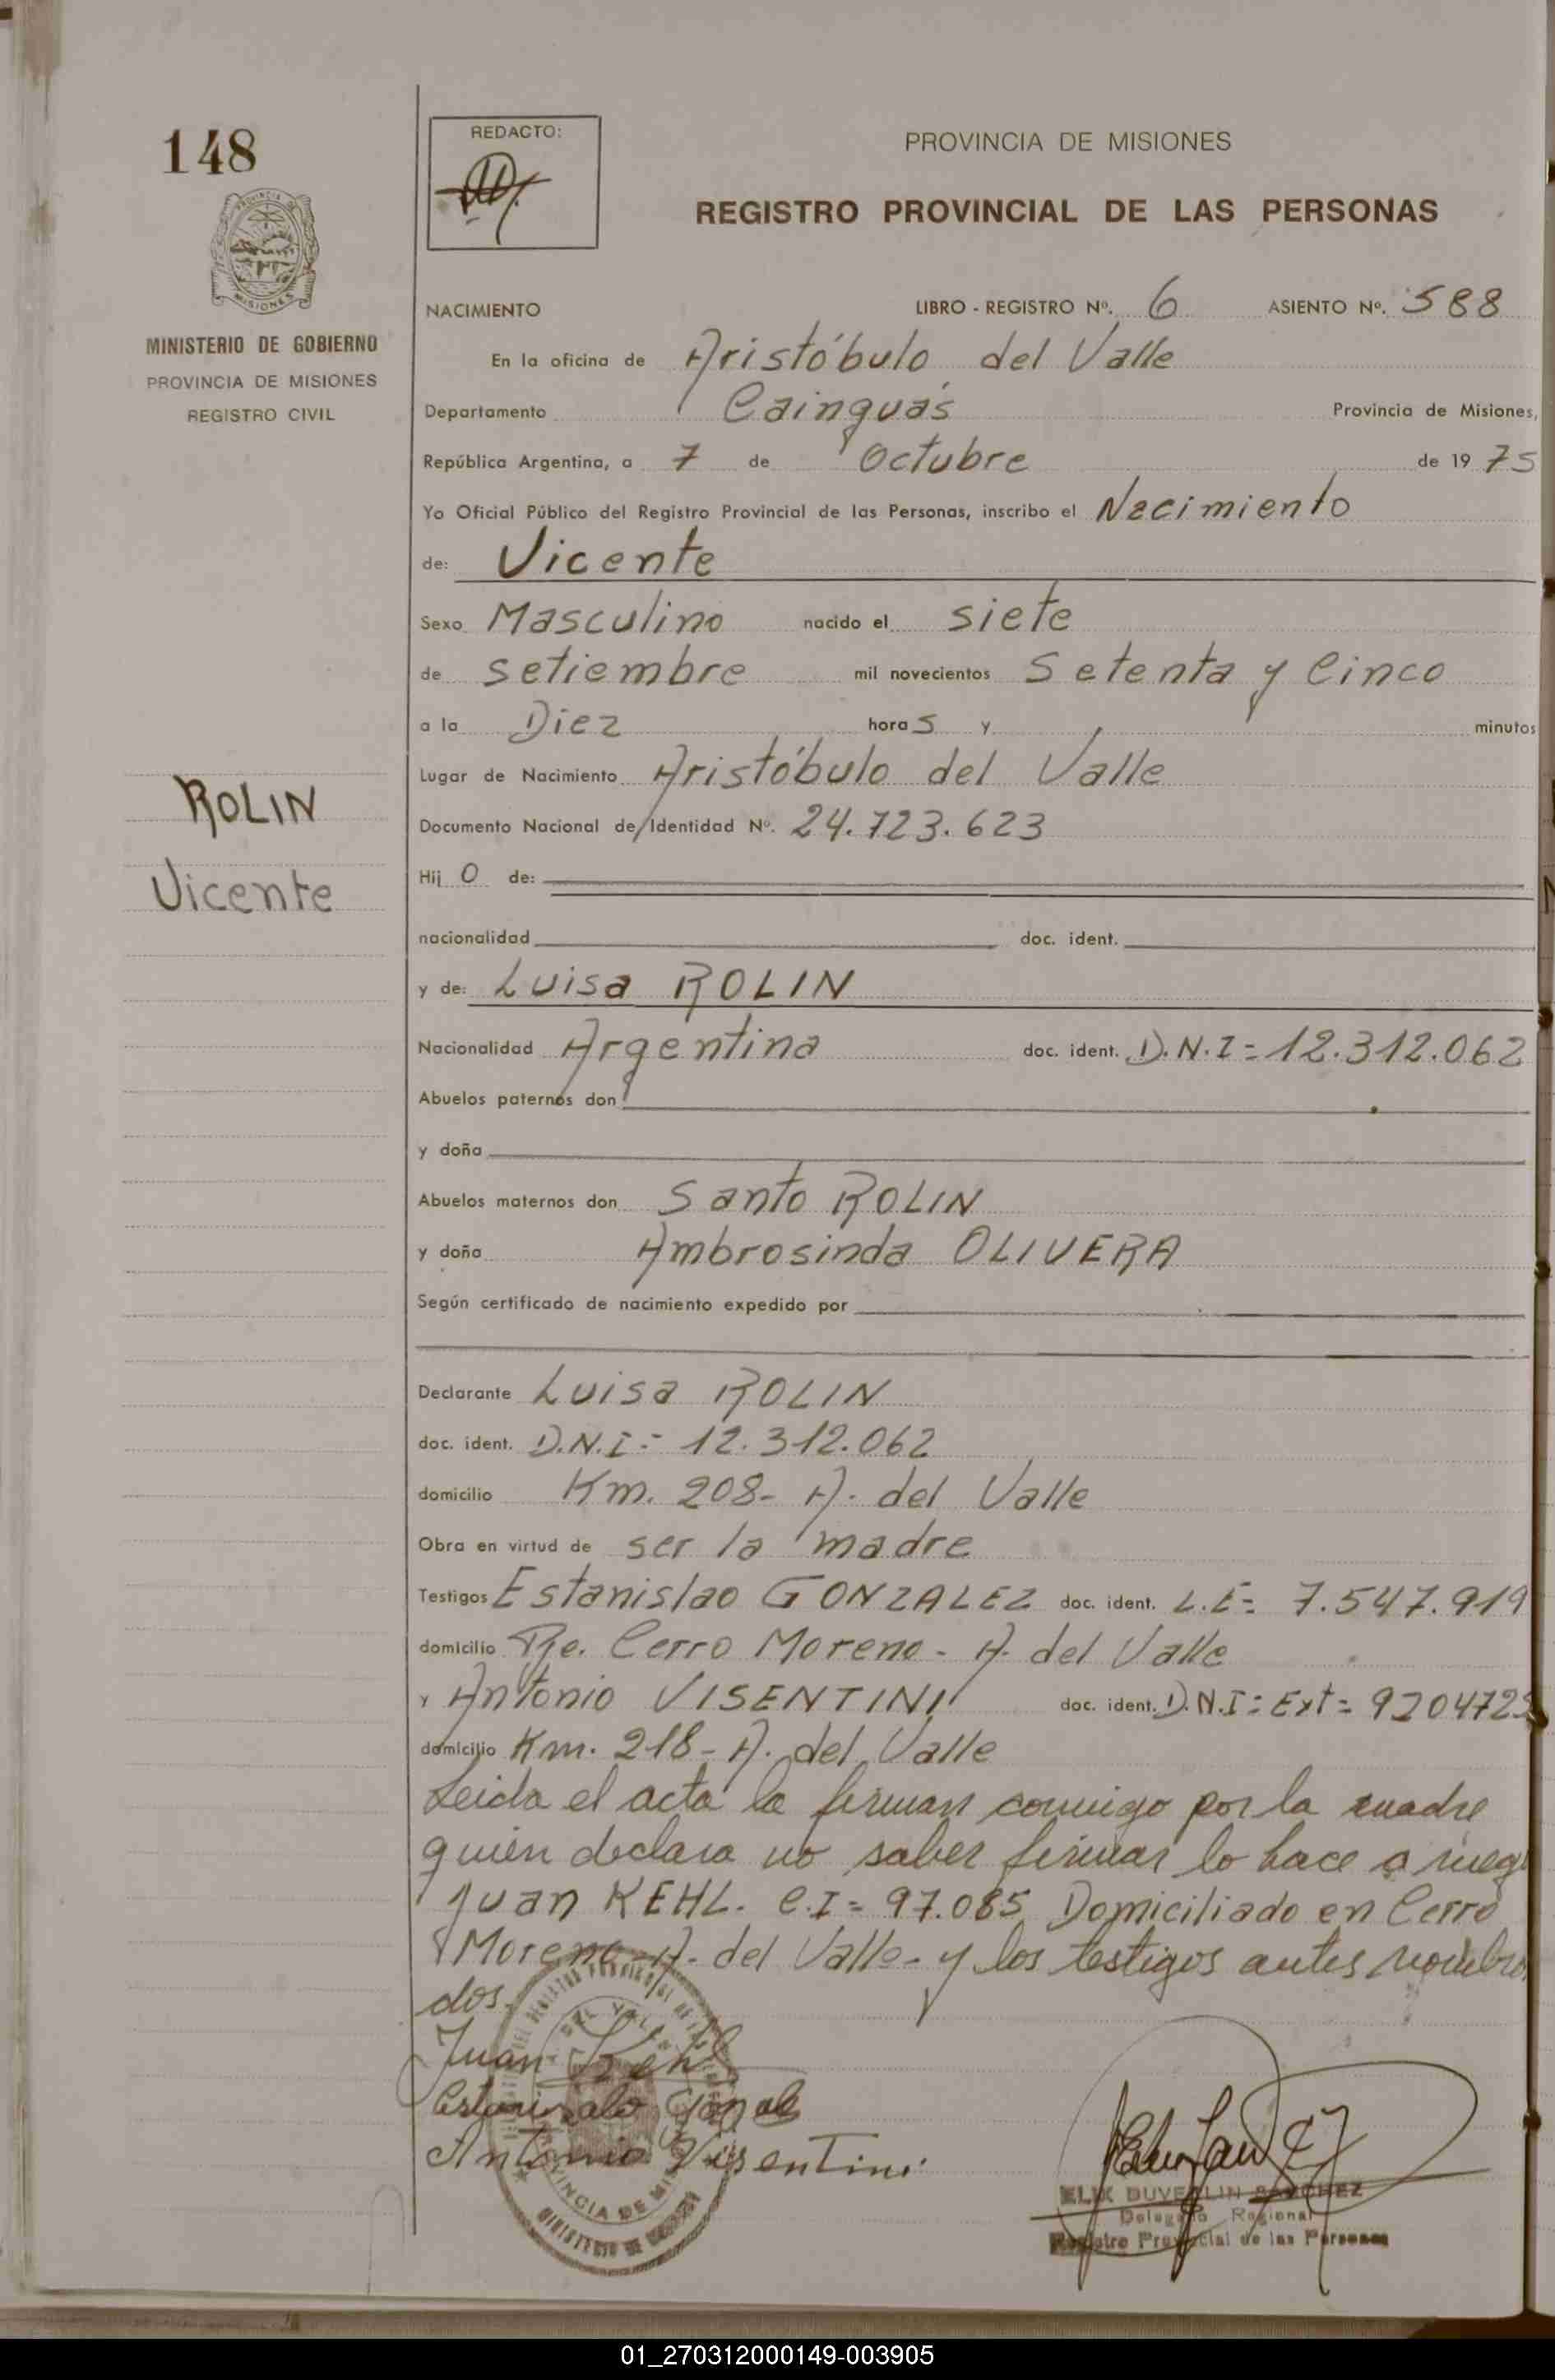 148
REDACTO:
PROVINCIA DE MISIONES
REGISTRO PROVINCIAL DE LAS PERSONAS
MISIONES
MINISTERIO DE GOBIERNO
PROVINCIA DE MISIONES
REGISTRO CIVIL
NACIMIENTO LIBRO - REGISTRO Nº. 6 ASIENTO Nº. 588
En la oficina de Aristóbulo del Valle
Departamento Cainguás Provincia de Misiones,
República Argentina, a 7 de Octubre de 19 75
Yo Oficial Público del Registro Provincial de las Personas, inscribo el Nacimiento
de: Vicente
Sexo Masculino nacido el siete
de setiembre mil novecientos Setenta y Cinco
a la Diez hora s y minutos
Lugar de Nacimiento Aristóbulo del Valle
ROLIN
Vicente
Documento Nacional de Identidad Nº. 24.723.623
Hij o de:
nacionalidad doc. ident.
y de: Luisa ROLIN
Nacionalidad Argentina doc. ident. D.N.I= 12.312.062
Abuelos paternos don
y doña
Abuelos maternos don Santo ROLIN
y doña Ambrosinda OLIVERA
Según certificado de nacimiento expedido por
Declarante Luisa ROLIN
doc. ident. D.N.I.- 12.312.062
domicilio Km. 208- A. del Valle
Obra en virtud de ser la madre
Testigos Estanislao GONZALEZ doc. ident. L.E= 7.547.919
domicilio Pje. Cerro Moreno - A. del Valle
y Antonio VISENTINI doc. ident. D.N.I= Ext=
domicilio Km. 218- A. del Valle
Leida el acta la firman conmigo por la madre
quien declara no saber firmar lo hace a ruego
Juan KEHL. C.I= 97.085 Domiciliado en Cerro
Moreno-A. del Valle- y los testigos antes nombra
dos.
Juan Kehl
Antonio Visentini
DUVERLIN SANCHEZ
Delegado Regional
Registro Provincial de las Personas
01_270312000149-003905